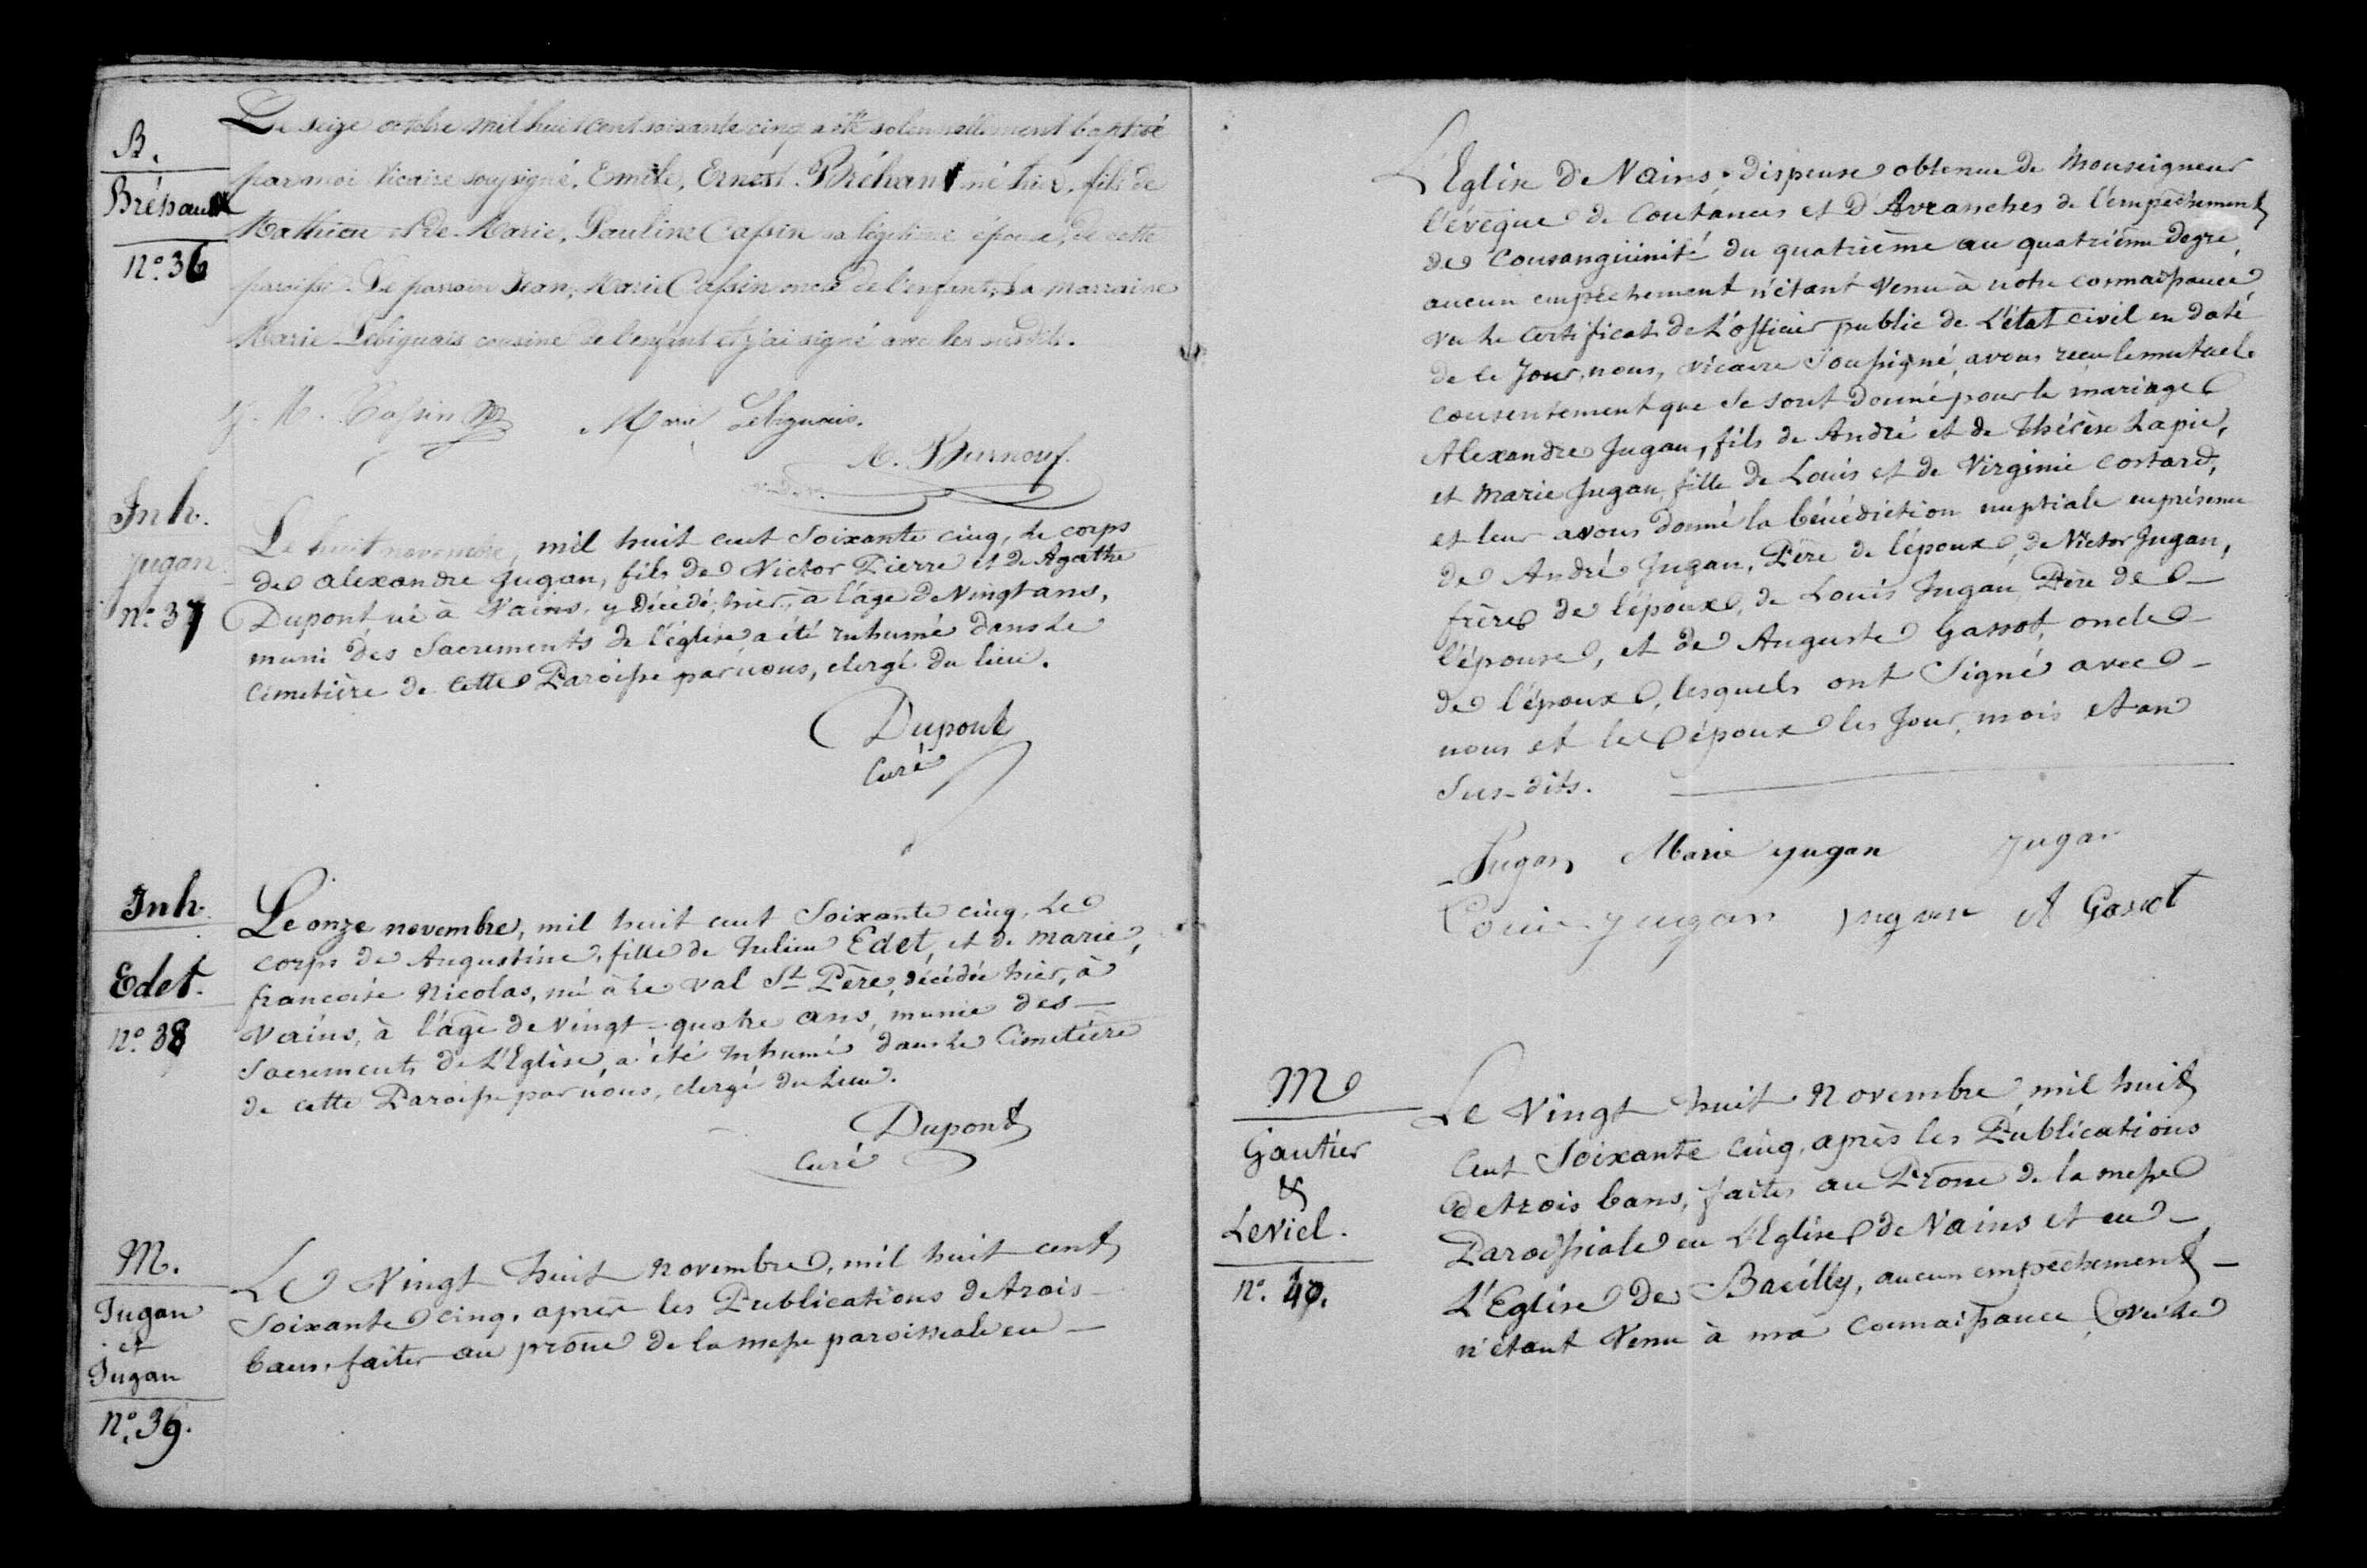 B.
Bréhant
N.° 36
Le seize octobre mil huit cent soixante cinq a été solennellement baptisé
par moi Vicaire soussigné, Emile, Ernest Bréhant né hier, fils de
Mathieu et de Marie, Pauline Cassin sa légitime épouse, de cette
paroisse. Le parrain Jean, Marie Cassin oncle de l'enfant, La marraine
Marie Lebiguais cousine de l'enfant et j'ai signé avec les susdits.
J. M. Cassin Marie Lebiguais.
A. Burnouf.
v. d. v.
Inh.
Jugan
N.° 37
Le huit novembre, mil huit cent Soixante cinq, Le corps
de alexandre Jugan, fils de Victor Pierre et de Agathe
Dupont né à Vains, y décédé, hier, à l'âge de Vingt ans,
muni des Sacrements de l'église, a été inhumé dans Le
Cimetière de cette Paroisse par nous, clergé du lieu.
Dupont
Curé
Inh.
Edet.
N.° 38
Le onze novembre, mil huit cent Soixante cinq, Le
corps de Augustine, fille de Julien Edet, et de Marie,
francoise Nicolas, né à Le Val St Père, décédée hier, à
Vains, à l'âge de Vingt-quatre ans, munie des
Sacrements de L'Eglise, a été Inhumé dans Le Cimetière
de cette Paroisse par nous, clergé du Lieu.
Dupont
Curé
M.
Jugan
et
Jugan
N.° 39.
Le Vingt huit Novembre, mil huit cent
Soixante cinq, après les Publications de trois
bans, faites au prône de la messe paroissiale en
L'Eglise de Vains, dispense obtenue de Monseigneur
l'évêque de Coutances et D'Avranches de l'empêchement
de Consangüinité du quatrième au quatrième degré,
aucun empêchement n'étant Venu à notre connaissance
Vu Le Certificat de L'officier public de L'état civil en daté
de ce Jour, nous, Vicaire Soussigné, avons reçu le mutuel
Consentement que Se sont donné pour le mariage
Alexandre Jugan, fils de André et de Thérèse Lapie,
et Marie Jugan, fille de Louis et de Virginie Costard,
et leur avons donné la bénédiction nuptiale en présence
de André Jugan, Père de l'époux, de Victor Jugan,
frère de l'époux, de Louis Jugan, Père de
l'épouse, et de Auguste Gassot, oncle
de l'époux, lesquels ont Signé avec
nous et les époux les Jour, mois et an
Sus-dits.
Jugan Marie jugan Jugan
Louis Jugan Jugan A Gassot
M
Gautier
&
LeViel.
N.° 40.
Le Vingt huit Novembre, mil huit
Cent Soixante Cinq, après les Publications
de trois bans, faites au Prône de la messe
Paroissiale en L'Eglise de Vains et en
L'Eglise de Bacilly, aucun empêchement
n'étant Venu à ma Connaissance, Vu Le